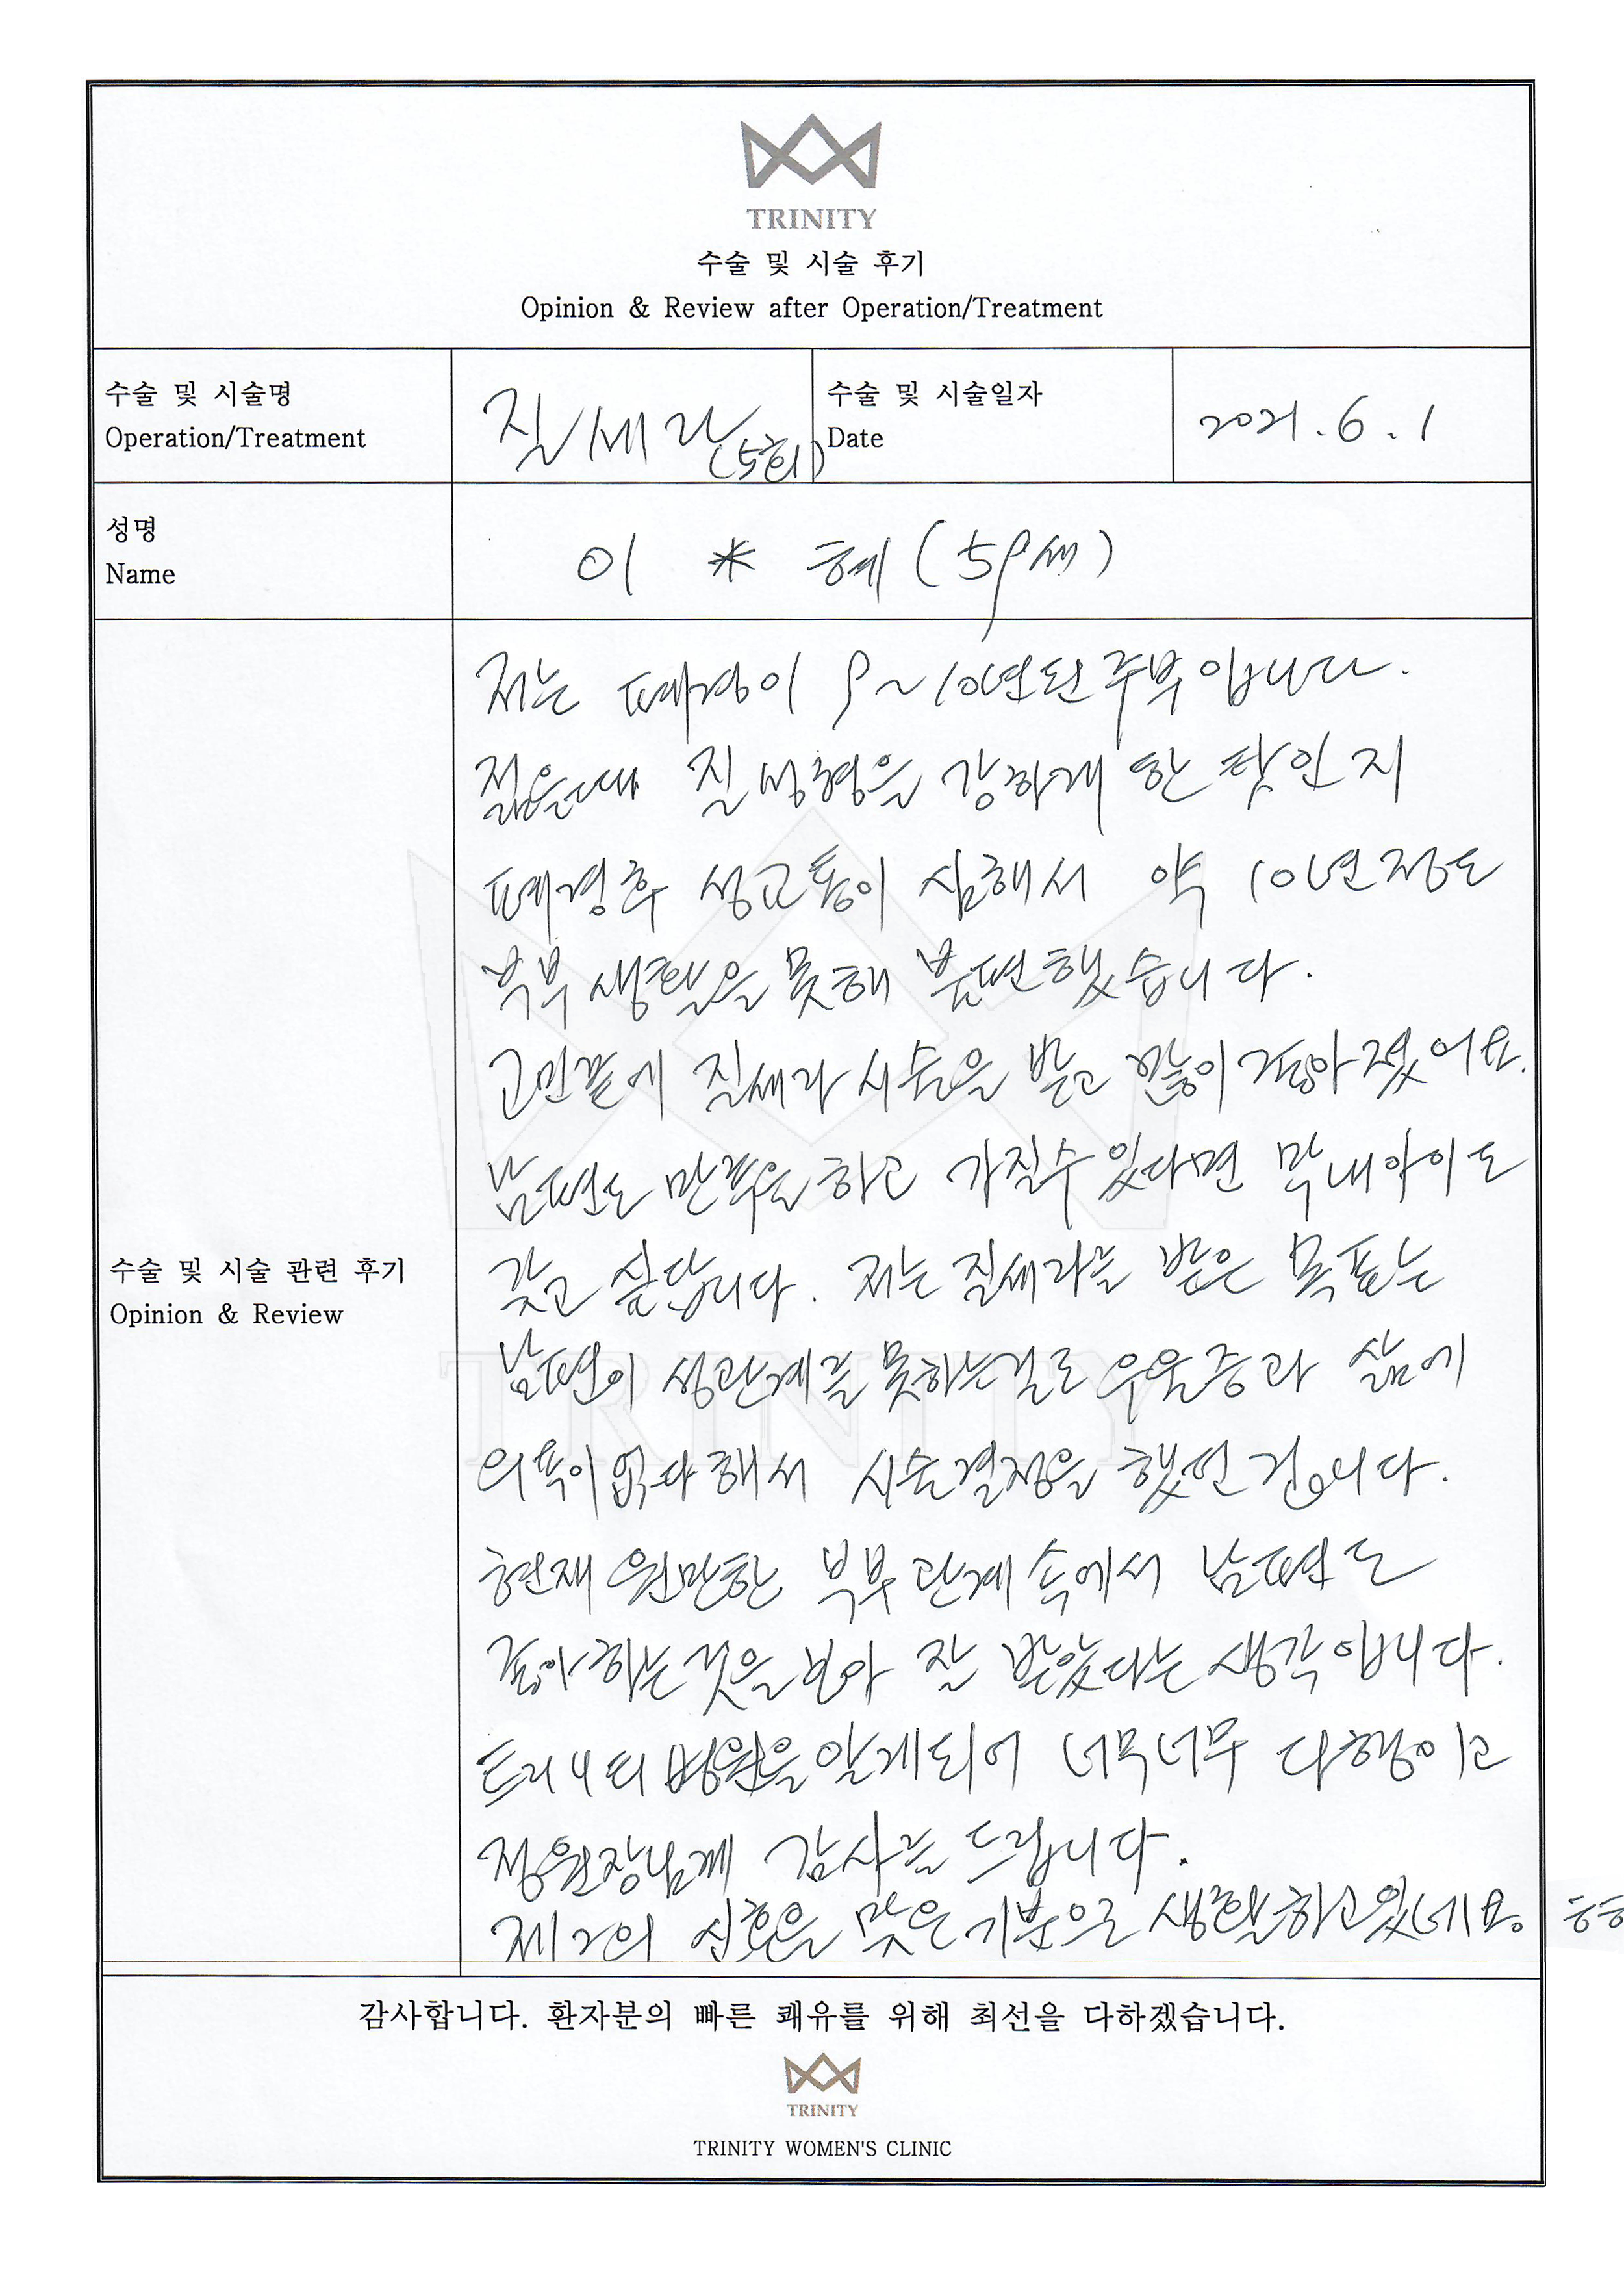 TRINITY
수술 및 시술 후기
Opinion & Review after Operation/Treatment
수술 및 시술명
Operation/Treatment
질쎄라 (5회)
수술 및 시술일자
Date
2021.6.1
성명
Name
이 * 혜 (59세)
수술 및 시술 관련 후기
Opinion & Review
저는 폐경이 9~10년된 주부입니다.
젊을때 질성형을 강하게 한 탓인지
폐경후 성교통이 심해서 약 10년정도
부부생활을 못해 불편했습니다.
고민끝에 질쎄라 시술을 받고 많이 좋아졌어요.
남편도 만족을 하고 가질수있다면 막내아이도
갖고 싶답니다. 저는 질쎄라를 받은 목표는
남편이 성관계를 못하는걸로 우울증과 삶에
의욕이 없다해서 시술결정을 했던 겁니다.
현재 원만한 부부관계속에서 남편도
좋아하는것을 보아 잘 받았다는 생각입니다.
트리니티병원을 알게되어 너무너무 다행이고
정원장님께 감사를 드립니다.
제2의 신혼을 맞은 기분으로 생활하고있네요.
TRINITY
감사합니다. 환자분의 빠른 쾌유를 위해 최선을 다하겠습니다.
TRINITY
TRINITY WOMEN'S CLINIC